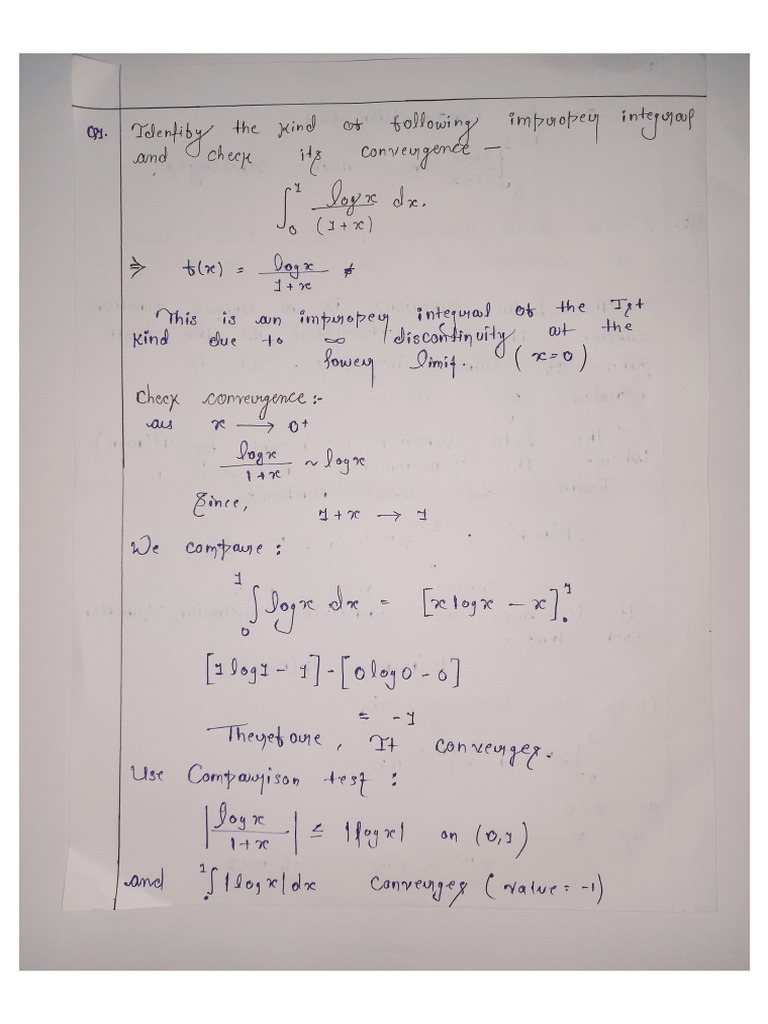 Q1. Identify the kind of following improper integral
and check its convergence –
∫₀¹ log x / (1+x) dx.
⇒ f(x) = log x / 1+x
This is an improper integral of the Ist
kind due to ∞ discontinuity at the
lower limit. (x=0)
Check convergence :-
as x → 0⁺
log x / 1+x ~ log x
Since, 1+x → 1
We compare :
∫₀¹ log x dx = [x log x – x]₀¹
[1 log 1 – 1] – [0 log 0 – 0]
= -1
Therefore, It converges.
Use Comparison test :
|log x / 1+x| ≤ |log x| on (0,1)
and ∫₀¹ |log x| dx converges (value = -1)